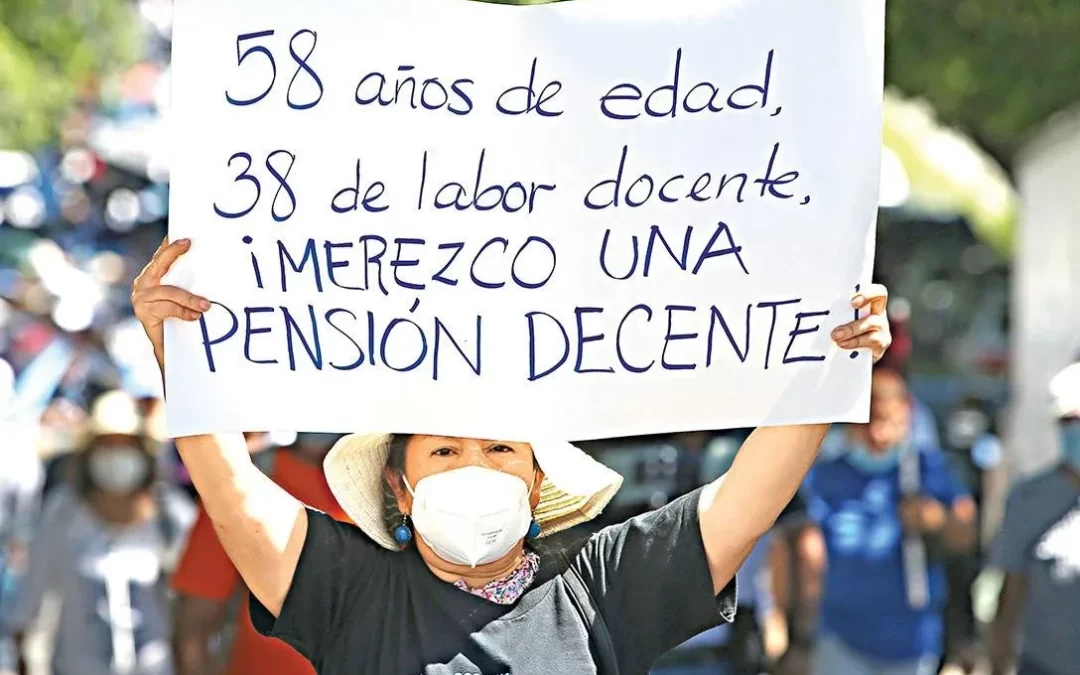 58 años de edad,
38 de labor docente,
¡MEREZCO UNA
PENSIÓN DECENTE!